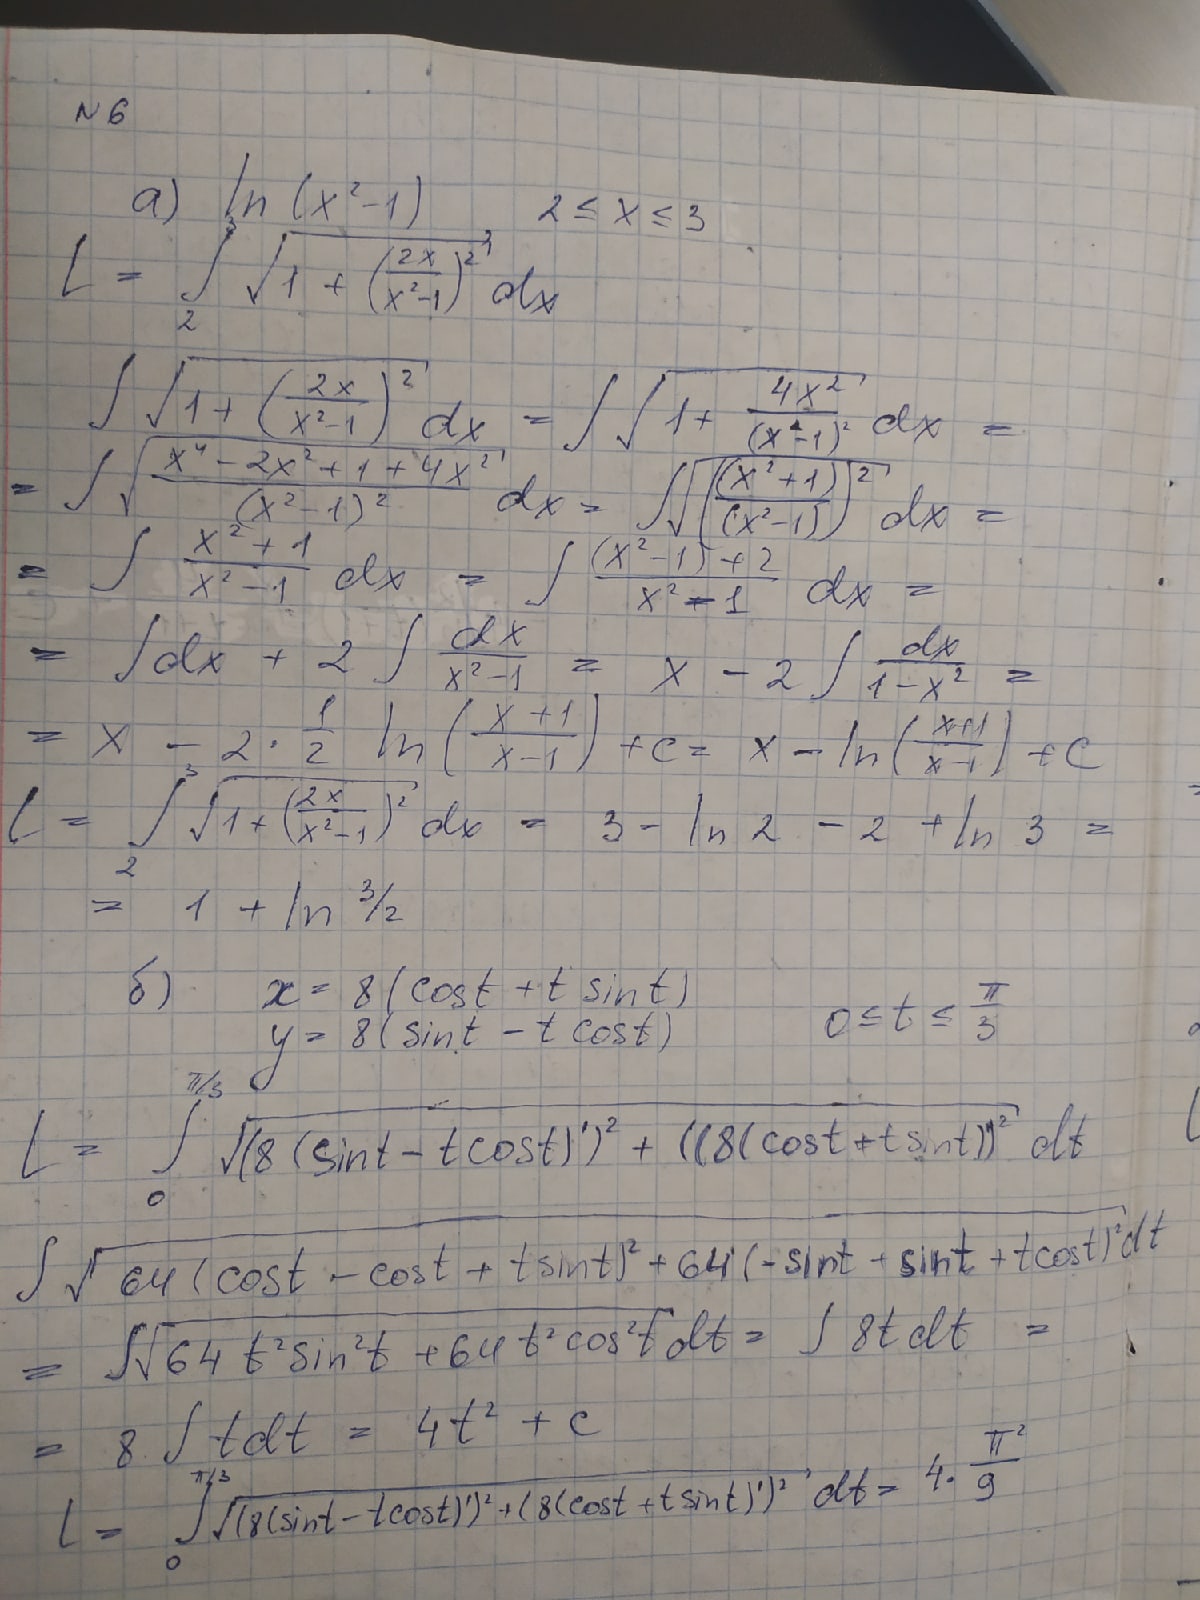 N6
а) ln (x²-1) 2 ≤ x ≤ 3
L = ∫₂³ √(1 + (2x/(x²-1))²) dx
∫ √(1 + (2x/(x²-1))²) dx = ∫ √(1 + 4x²/(x²-1)²) dx =
= ∫ √((x⁴ - 2x² + 1 + 4x²)/(x²-1)²) dx = ∫ √(((x²+1)/(x²-1))²) dx =
= ∫ (x²+1)/(x²-1) dx = ∫ ((x²-1)+2)/(x²-1) dx =
= ∫ dx + 2 ∫ dx/(x²-1) = x - 2 ∫ dx/(1-x²) =
= x - 2 · 1/2 ln ((x+1)/(x-1)) + c = x - ln ((x+1)/(x-1)) + c
L = ∫₂³ √(1 + (2x/(x²-1))²) dx = 3 - ln 2 - 2 + ln 3 =
= 1 + ln 3/2
б) x = 8 (cost + t sint)
y = 8 (sint - t cost) 0 ≤ t ≤ π/3
L = ∫₀^(π/3) √((8 (sint - t cost)')² + ((8 (cost + t sint))')² dt
∫ √(64 (cost - cost + t sint)² + 64 (-sint + sint + t cost)²) dt
= ∫ √(64 t² sin²t + 64 t² cos²t) dt = ∫ 8t dt =
= 8 ∫ t dt = 4t² + c
L = ∫₀^(π/3) √((8(sint - t cost)')² + (8(cost + t sint)')²) dt = 4 · π²/9